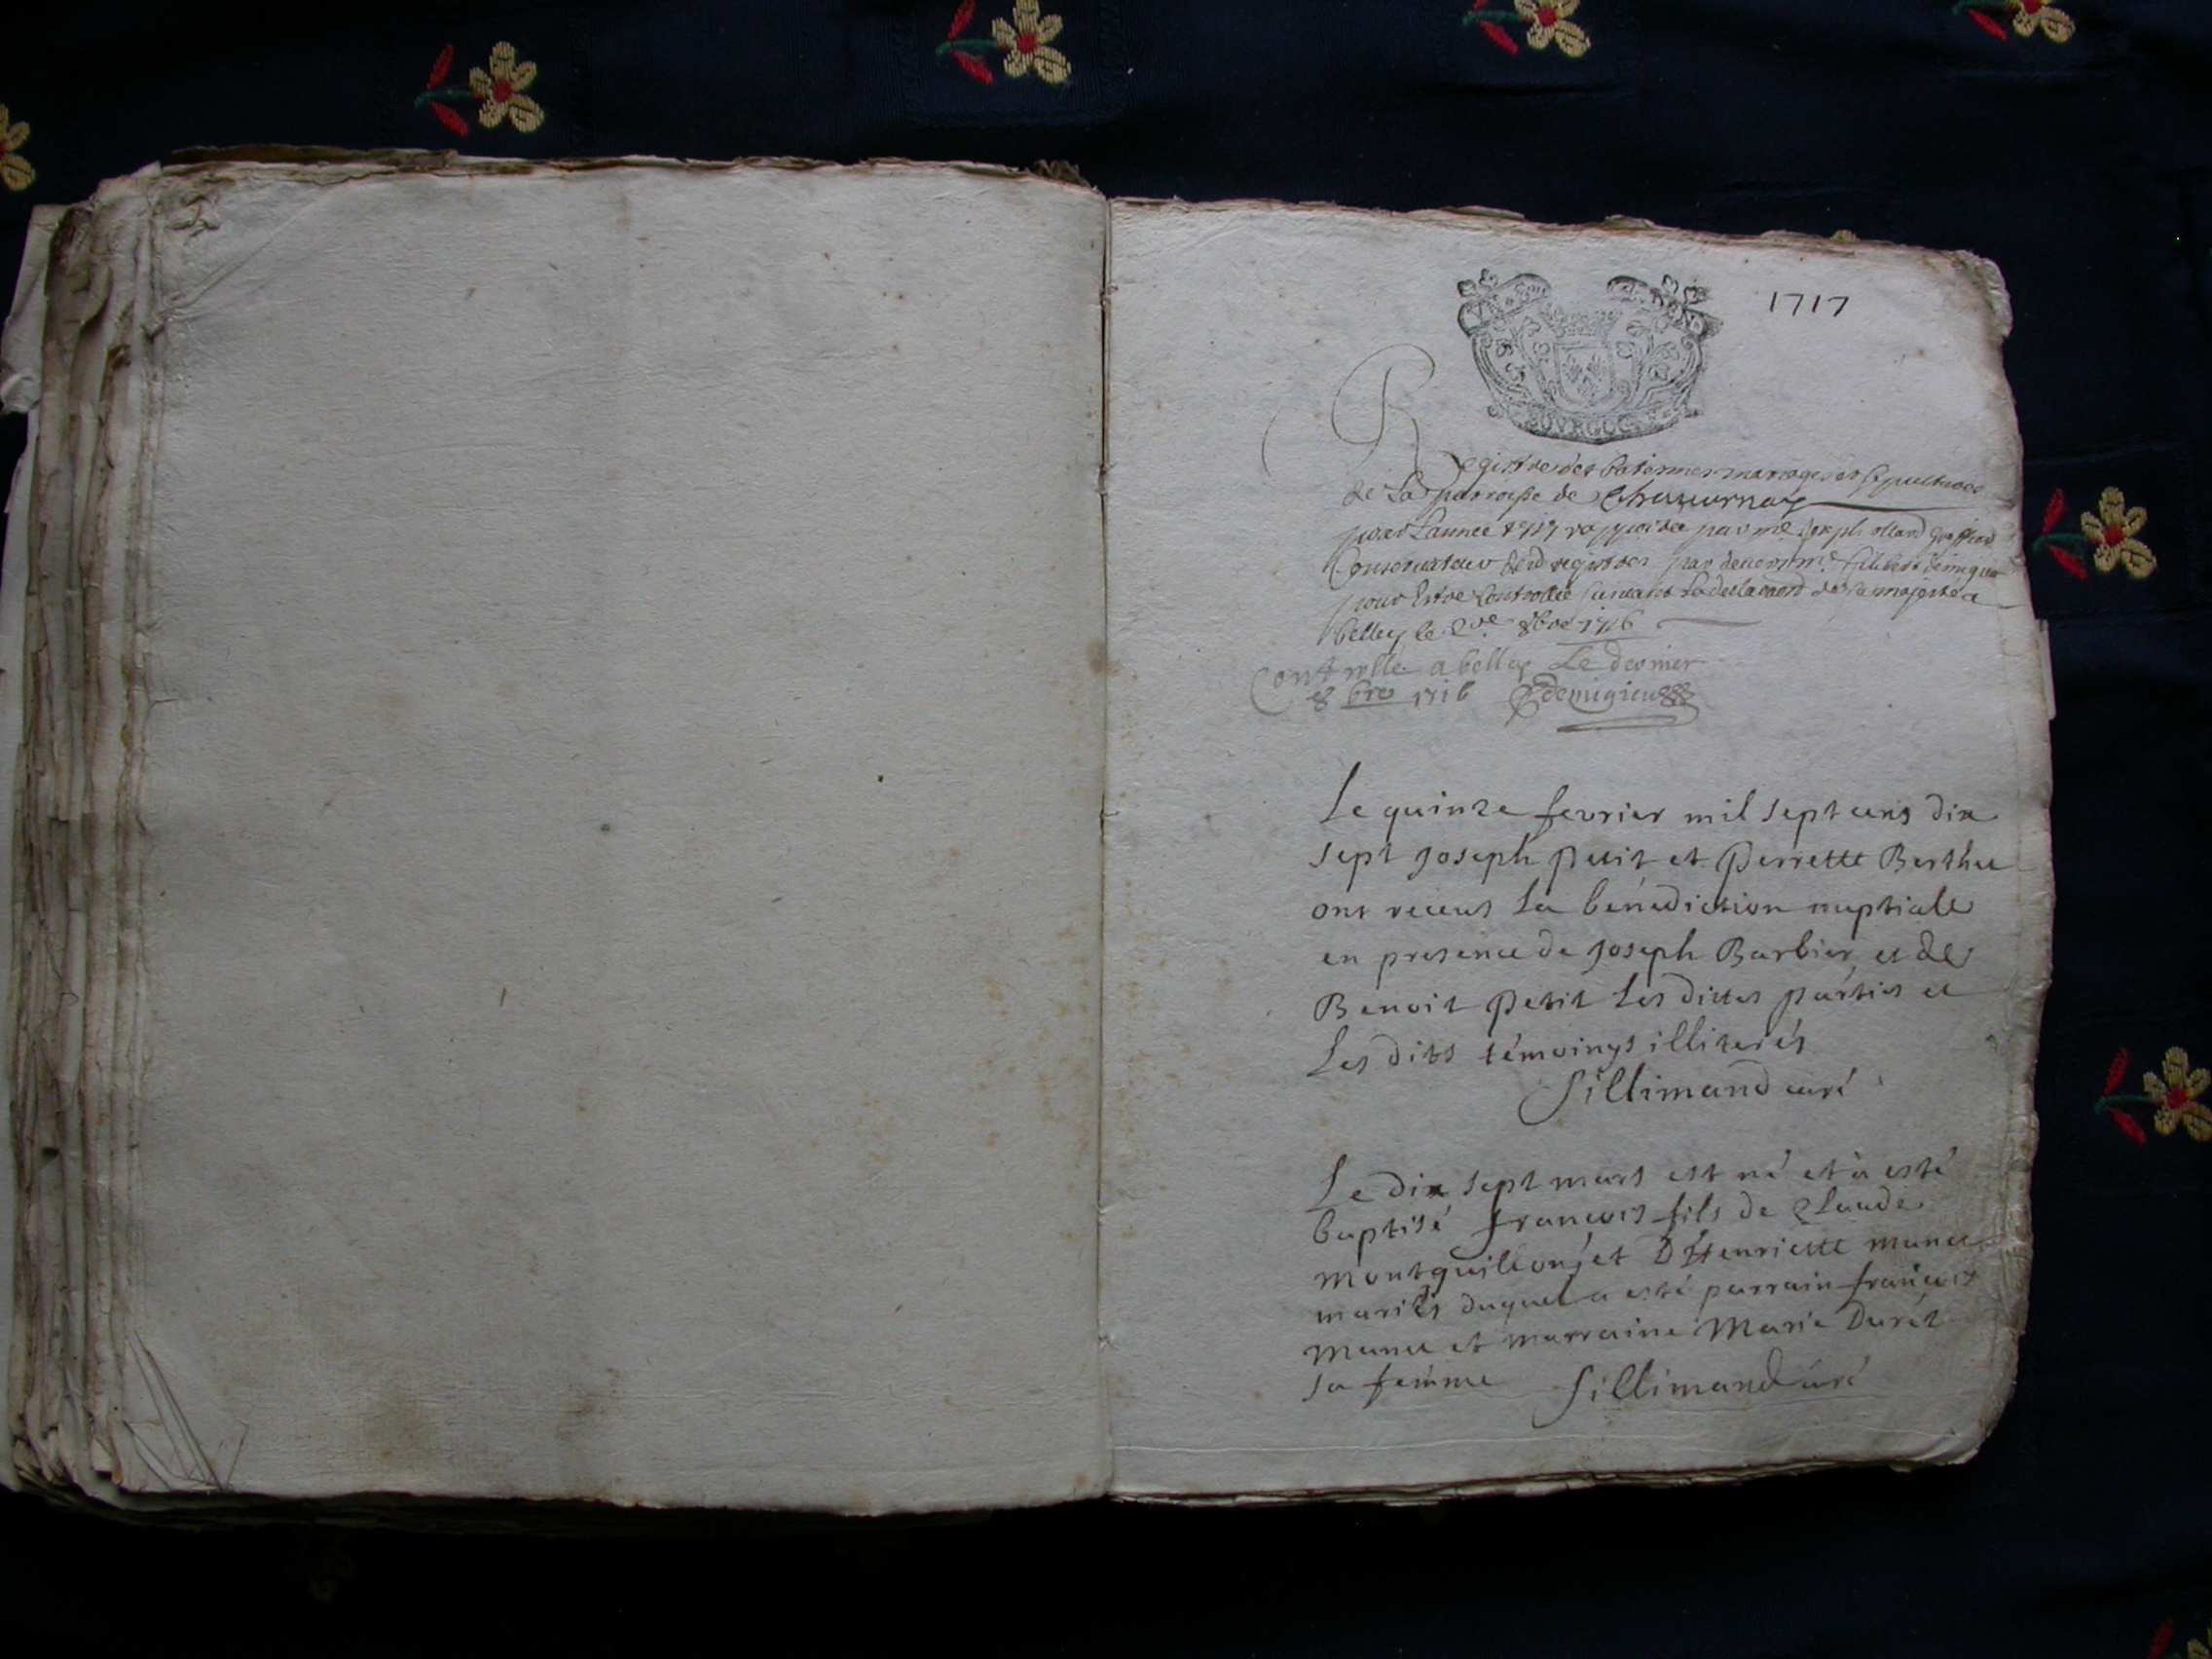 1717
BOVRGOG
Registre des batesmes mariages et sepultures
de La parroisse de Chavornay
pour L'annee 1717 rapportée par me Joseph ollard greffier
Conservateur desd registres par devers mre filibert demigieu
pour Estre Controllée suivant La declaraon de sa majesté a
belley le 8bre 1716
Controllé a belley Le dernier
8bre 1716 Demigieu
Le quinze fevrier mil sept cens dix
sept Joseph Petit et Perrette Berthet
ont receus La bénédiction nuptiale
en presence de Joseph Barbier et de
Benoit Petit Les dittes parties et
Les dits témoings illiterés
Sillimand curé
Le dix sept mars est né et à esté
baptisé francois fils de Claude
montguillon et D'Henriette
mariés duquel a esté parrain francois
et marraine Marie Durét
sa femme Sillimand curé